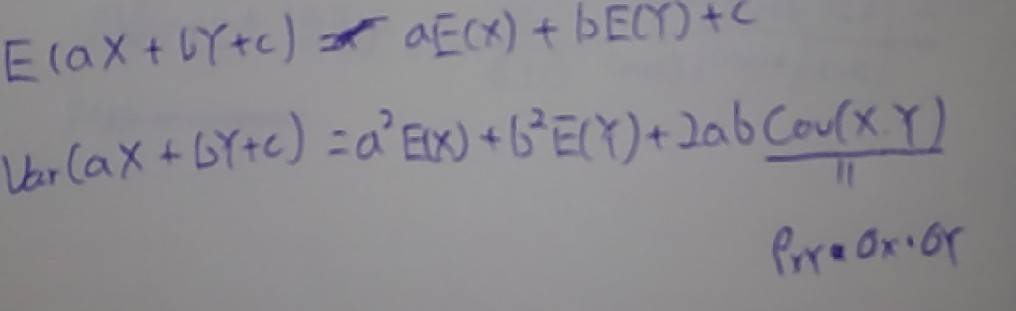 E(aX + bY + c) = aE(X) + bE(Y) + c
Var(aX + bY + c) = a²E(X) + b²E(Y) + 2ab Cov(X.Y)
॥
ρxy · σx · σY